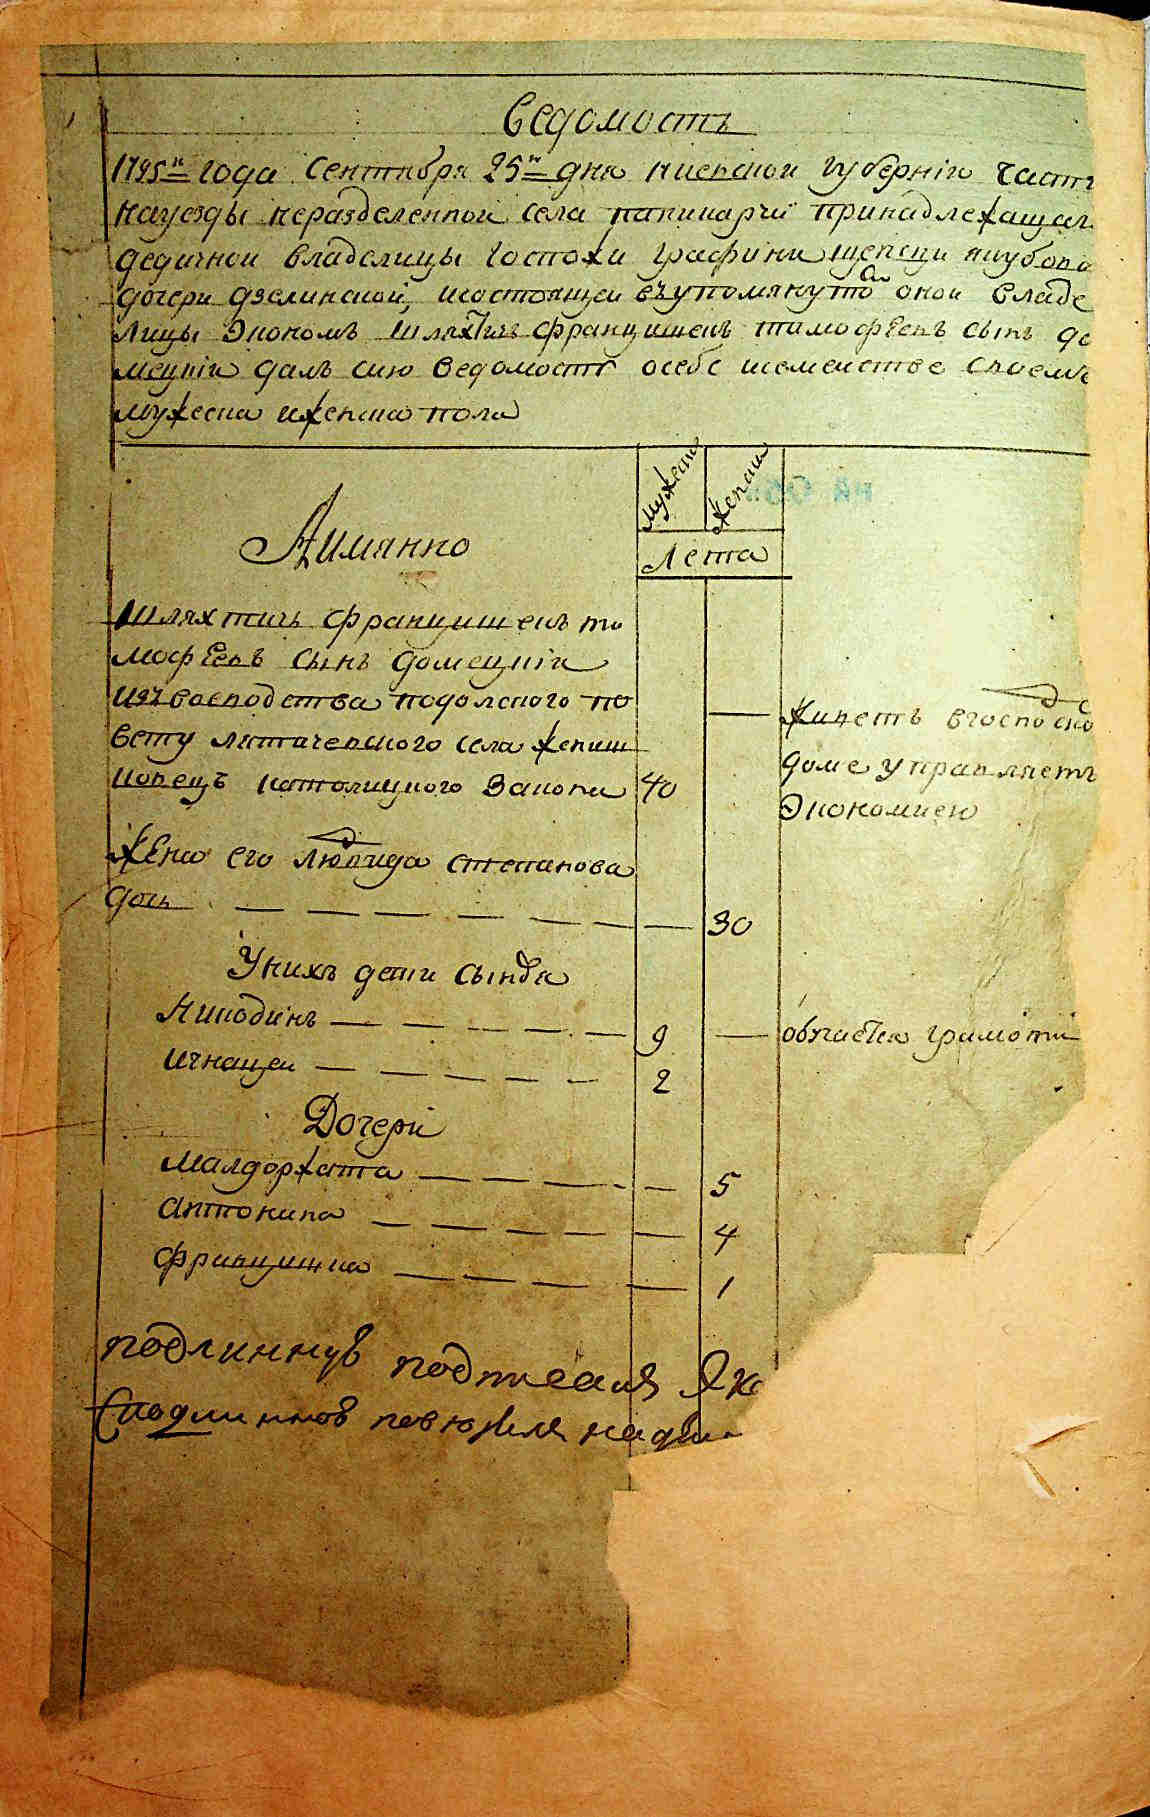 Ведомость
1795 н года Сентября 25 н дня киевской губернiи часть
науезды неразделенной села пипинарчи принадлежащая
дедичной владелицы госпожи графини
дочери дзелинской, исостоящей въупомянутой оной владе
лицы экономъ шляхтичъ францишекъ тимофеевъ сынъ до
мецкiй далъ сию ведомость осебе исеменстве своемъ
мужеска иженска пола
мужеска
женска
Аимянно
Лета
шляхтичъ францишекъ ти
мофеевъ сынъ домецкiи
изъвоеводства подолского по
вету литичевского села жениш
ковецъ католицкого закона 40 —
живетъ вгосподско
доме управляетъ
экономиею
жена его людвида степанова
дочь — — — — — — — — 30
Унихъ дети сыновя
Никодимъ — — — — — — 9 — обучается грамоти
игнацеи — — — — — — 2
Дочери
малдоржата — — — — — — 5
антонина — — — — — — 4
францишка — — — — — — 1
подлинную подписалъ Як
Споднинною